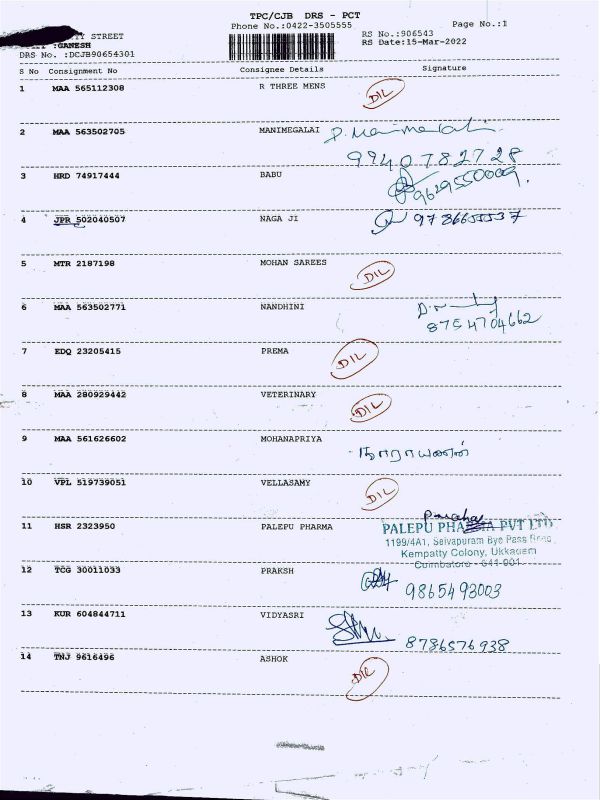 TPC/CJB DRS - PCT
Phone No.:0422-3505555 Page No.:1
STREET RS No.:906543
:GANESH RS Date:15-Mar-2022
DRS No. :DCJB90654301
S No Consignment No Consignee Details Signature
1 MAA 565112308 R THREE MENS DIL
2 MAA 563502705 MANIMEGALAI D. Manimegalai
9940782728
3 HRD 74917444 BABU 9629550009
4 JPR 502040507 NAGA JI
5 MTR 2187198 MOHAN SAREES DIL
6 MAA 563502771 NANDHINI
8754704662
7 EDQ 23205415 PREMA DIL
8 MAA 280929442 VETERINARY DIL
9 MAA 561626602 MOHANAPRIYA நாராயணன்
10 VPL 519739051 VELLASAMY DIL
11 HSR 2323950 PALEPU PHARMA PALEPU PHARMA PVT LTD
1199/4A1, Selvapuram Bye Pass Road
Kempatty Colony, Ukkadam
Coimbatore - 641 001
12 TCG 30011033 PRAKSH 9865493003
13 KUR 604844711 VIDYASRI
8786576938
14 TNJ 9616496 ASHOK DIL